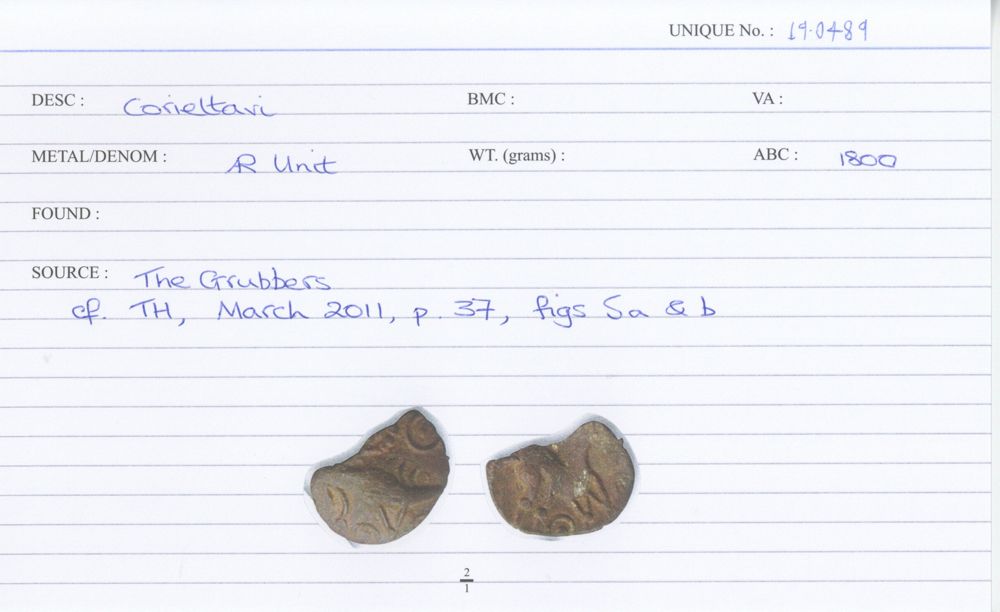 UNIQUE No. : 19.0489
DESC : Corieltavi BMC : VA :
METAL/DENOM : AR Unit WT. (grams) : ABC : 1800
FOUND :
SOURCE : The Grubbers
cf. TH, March 2011, p. 37, figs 5a & b
2
1